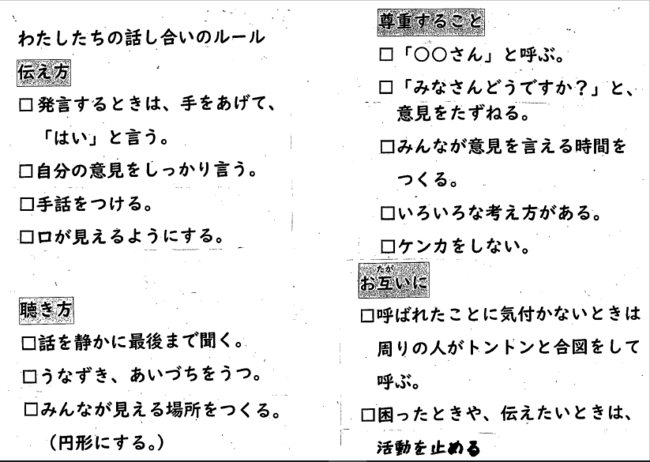 わたしたちの話し合いのルール
伝え方
□発言するときは、手をあげて、
「はい」と言う。
□自分の意見をしっかり言う。
□手話をつける。
□口が見えるようにする。
聴き方
□話を静かに最後まで聞く。
□うなずき、あいづちをうつ。
□みんなが見える場所をつくる。
（円形にする。）
尊重すること
□「○○さん」と呼ぶ。
□「みなさんどうですか？」と、
意見をたずねる。
□みんなが意見を言える時間を
つくる。
□いろいろな考え方がある。
□ケンカをしない。
たが
お互いに
□呼ばれたことに気付かないときは
周りの人がトントンと合図をして
呼ぶ。
□困ったときや、伝えたいときは、
活動を止める